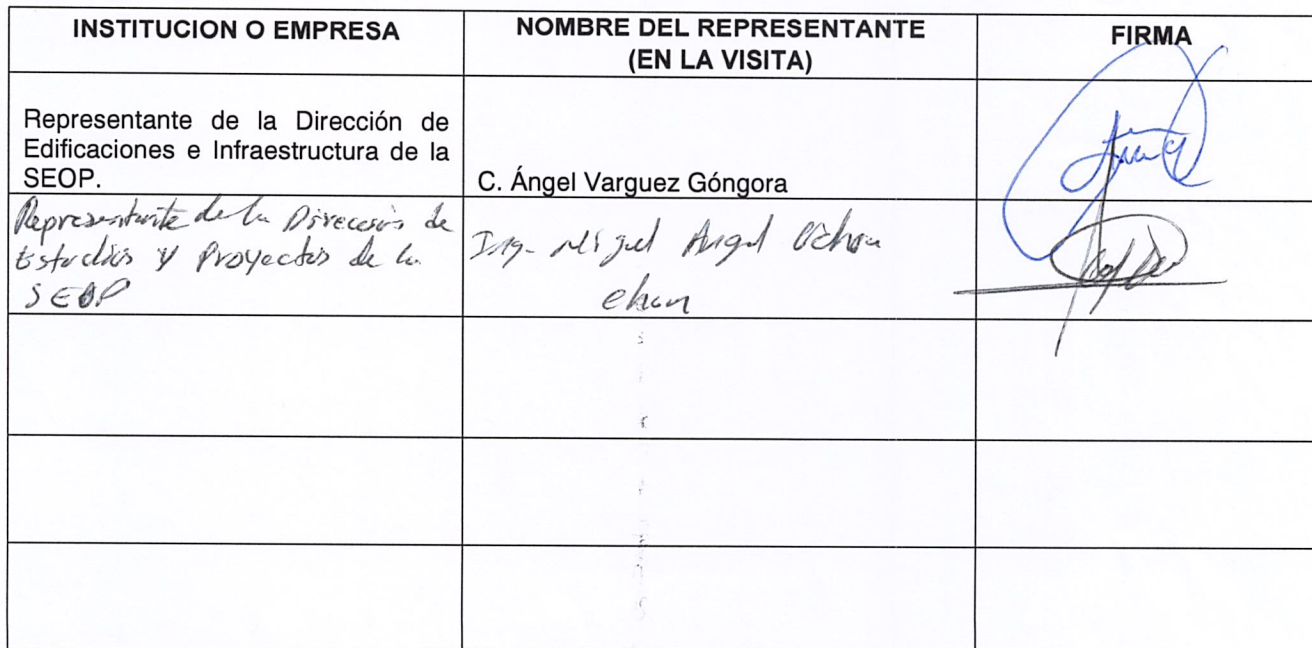 INSTITUCION O EMPRESA
NOMBRE DEL REPRESENTANTE
(EN LA VISITA)
FIRMA
Representante de la Dirección de
Edificaciones e Infraestructura de la
SEOP.
C. Ángel Varguez Góngora
Representante de la Dirección de
Estudios y Proyectos de la
SEOP
Ing. Miguel Angel Ochoa
chan